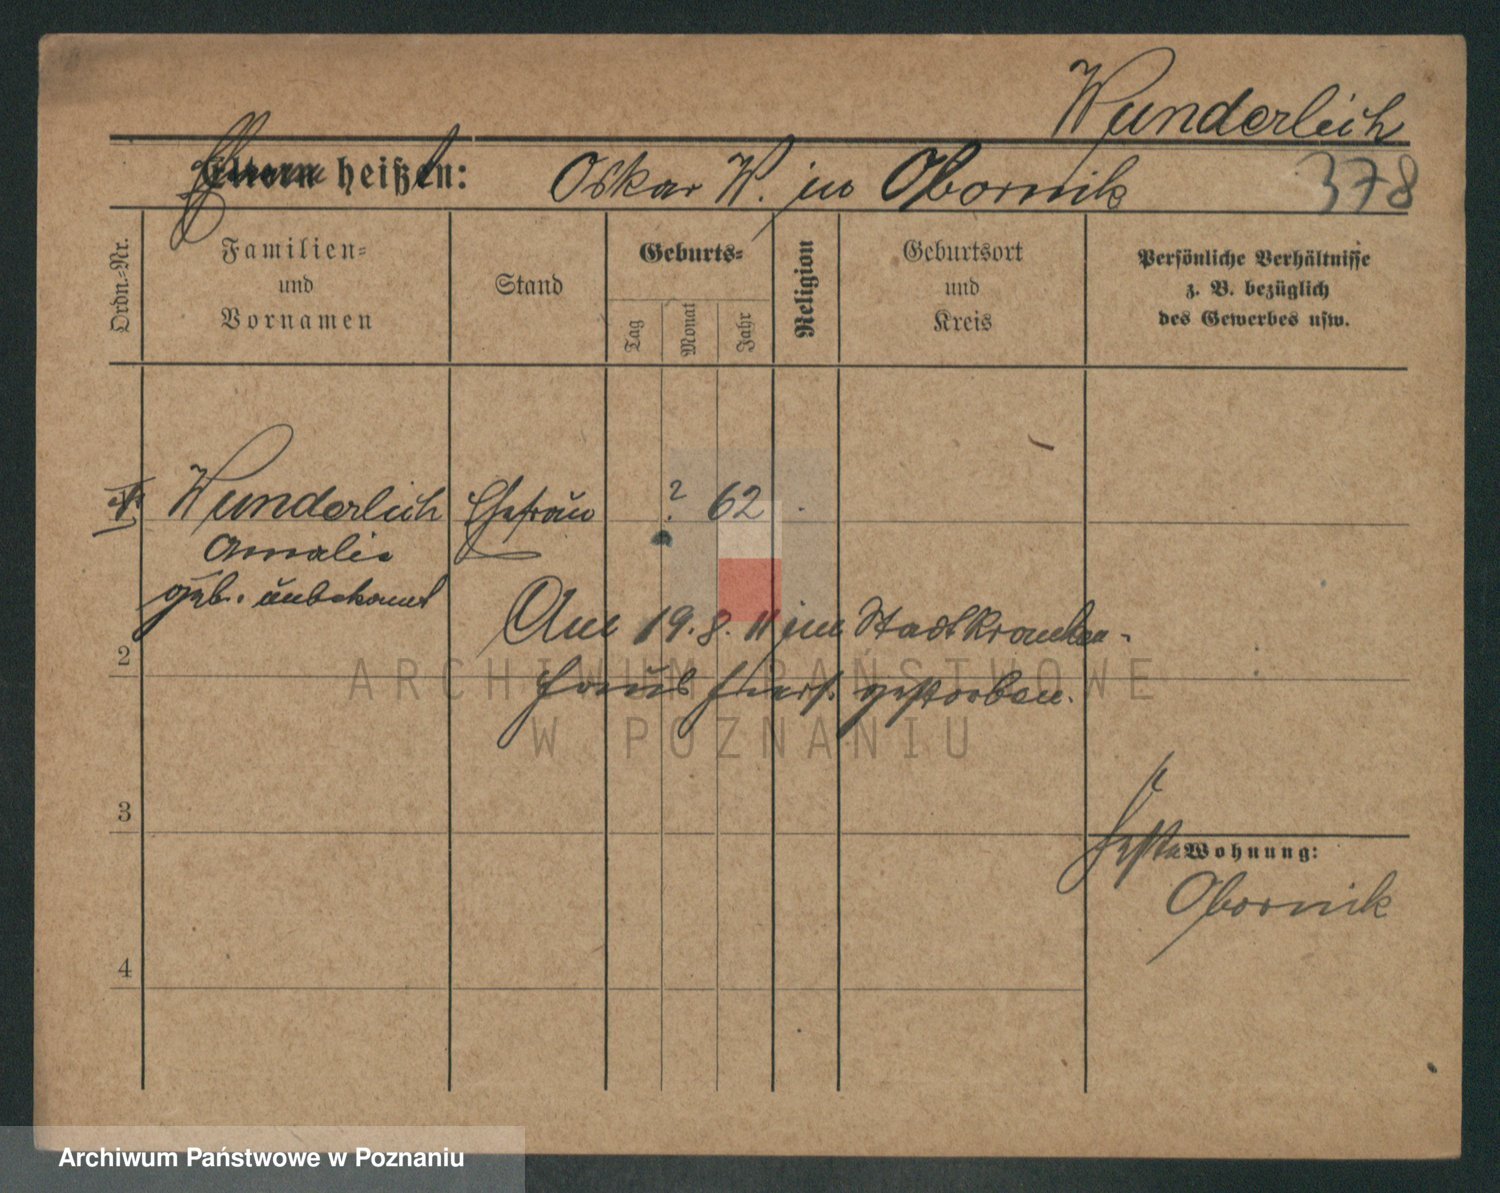 Wunderlich
Eltern heißen: Oskar W. in Obornik 378
Ordn.-Nr.
Familien-
und
Vornamen
Stand
Geburts-
Tag
Monat
Jahr
Religion
Geburtsort
und
Kreis
Persönliche Verhältnisse
z. B. bezüglich
des Gewerbes usw.
1 Wunderlich Ehefrau ? 62
Amalie
geb. unbekannt
Am 19. 8. 11 im Stadtkranken-
haus hiers. gestorben.
2
3
4
Wohnung:
Obornik
ARCHIWUM PAŃSTWOWE
W POZNANIU
Archiwum Państwowe w Poznaniu